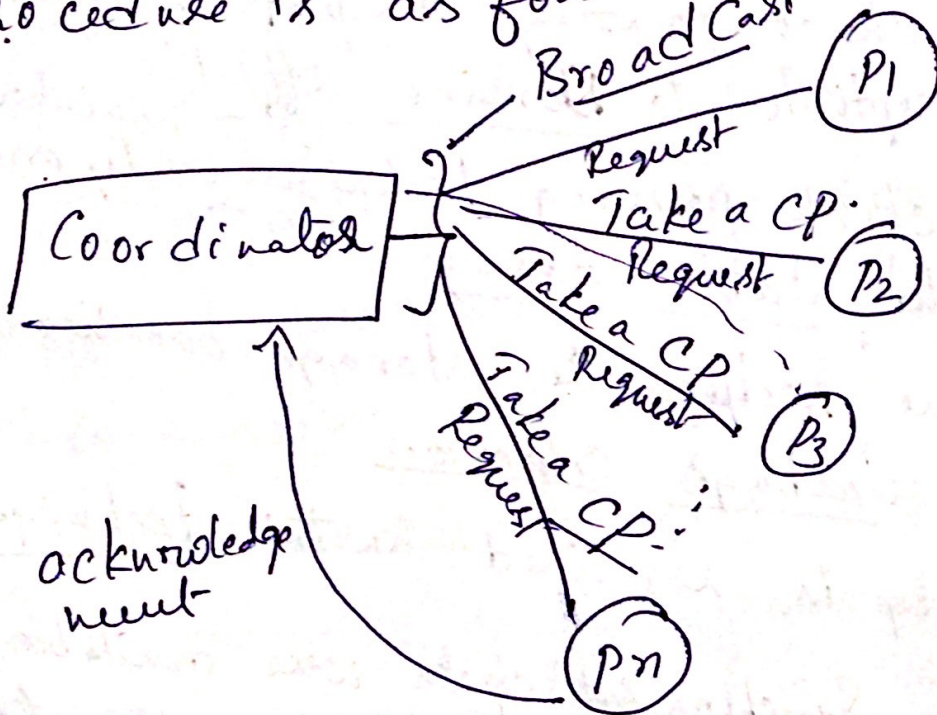 ocedure is as
Broad Cast
P1
Request
Coordinator
Take a CP.
Request
P2
Take a CP
Request
P3
Take a CP.
Request
acknowledge
ment
Pn